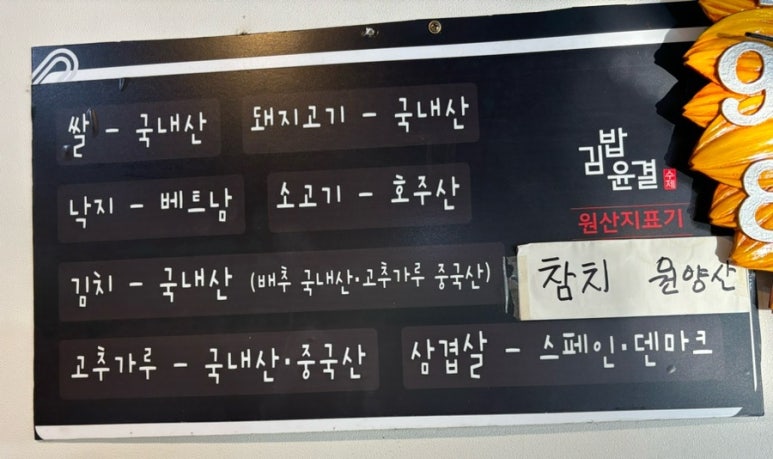 쌀 - 국내산
돼지고기 - 국내산
낙지 - 베트남
소고기 - 호주산
김밥
윤결
수제
원산지표기
김치 - 국내산 (배추 국내산·고추가루 중국산)
참치 원양산
고추가루 - 국내산·중국산
삼겹살 - 스페인·덴마크
9
8